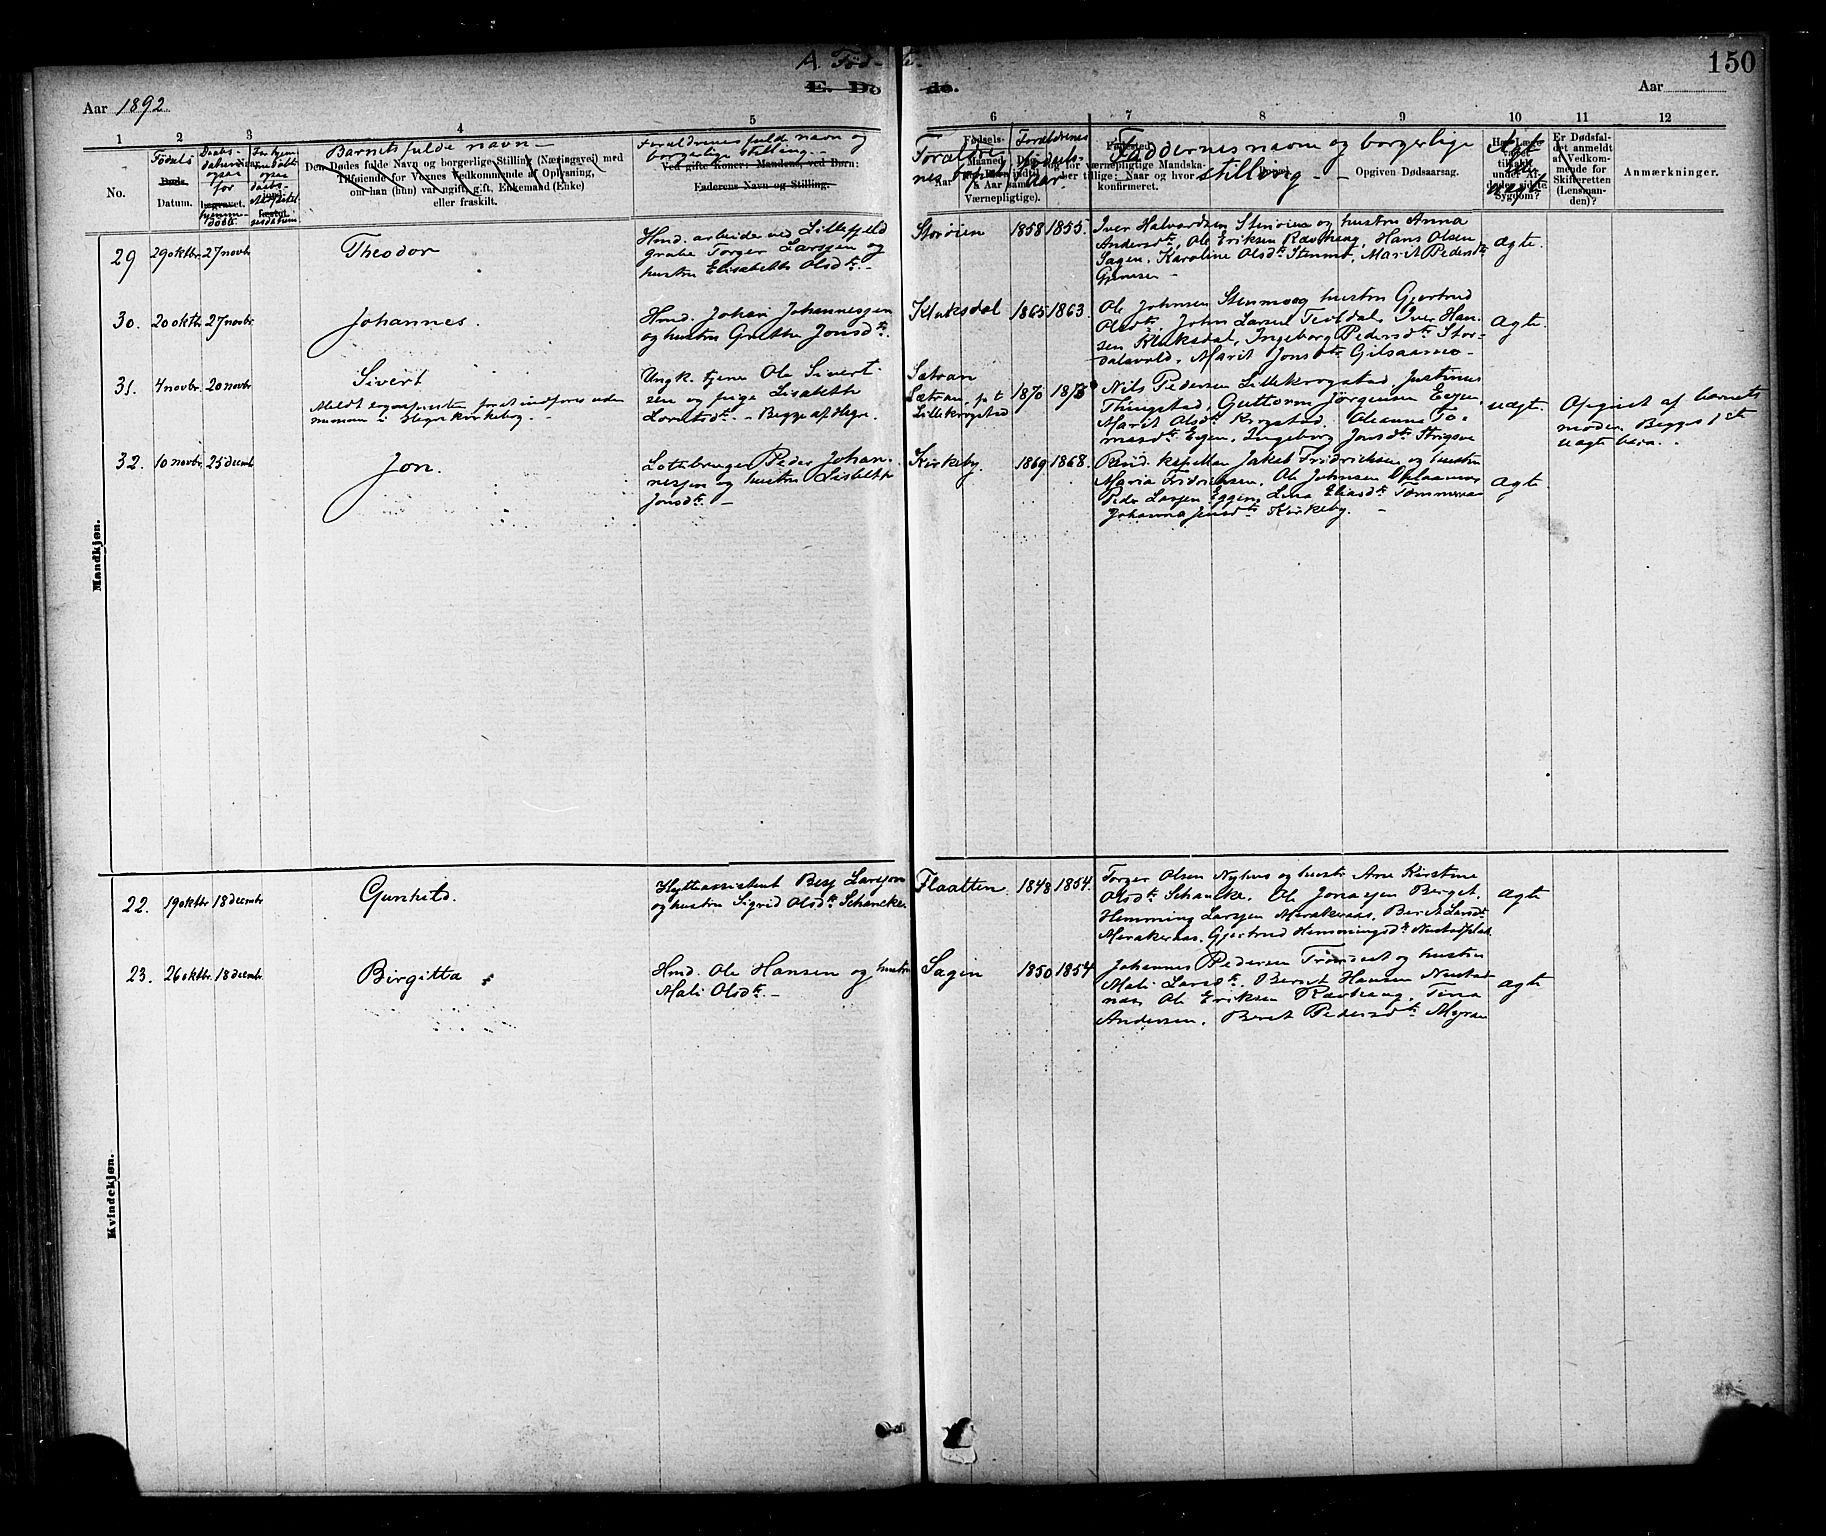 150
A. Fødte.
E. Døde.
Aar 1892.
Aar
1 2 3 4 5 6 7 8 9 10 11 12
No.
Fødsels
Døds-
Datum.
Daabs-
datum
ogsaa
for
hjemme-
døbte.
begravet.
Barnets fulde navn
Den Dødes fulde Navn og borgerlige Stilling (Næringsvei) med
Tilføiende for Voxnes Vedkommende af Oplysning,
om han (hun) var ugift, gift, Enkemand (Enke)
eller fraskilt.
Forældrenes fulde navn og
borgerlige stilling
Ved gifte Koner: Mandens, ved Børn:
Faderens Navn og Stilling.
Forældrenes
fødsels-
aar.
Faddernes navn og borgerlige
stilling
Opgiven Dødsaarsag.
Er Dødsfal-
det anmeldt
af Vedkom-
mende for
Skifteretten
(Lensman-
den)?
Anmærkninger.
Mandkjøn.
29 29 oktbr. 27 novbr. Theodor
Hmd. arbeider ved Lillefjeld
grube Torger Larssen og
hustru Elisabeth Olsdtr.
Storøien 1858 1855.
Iver Halvardsen Stenøien og hustru Anna
Andersdtr, Ole Eriksen Ravhaug, Hans Olsen
Sagen, Karoline Olsdtr Stenmo, Marit Pedersdtr
ægte.
30. 20 oktbr. 27 novbr. Johannes.
Hmd. Johan Johannessen
og hustru Grethe Jonsdtr.
Kluksdal 1865 1863.
Ole Johnsen Stenmo og hustru Gjertrud
Olsdtr, John Larsen Tevldal, Iver Han-
sen Kluksdal, Ingeborg Pedersdtr Stor-
dalsvold, Marit Jonsdtr Gilsaamo
ægte.
31. 4 novbr. 20 novbr. Sivert
Meldt sognepresten for at indføres uden
numer i Hegre kirkebog.
Ungk. tjener Ole Sivert-
sen og pige Lisabeth
Lorntsdtr. Begge af Hegre.
Sætran
Sætran, p.t.
Lillekrogstad
1870 1873
Nils Pedersen Lillekrogstad, Justinus
Thingstad, Guttorm Jørgensen Evjen,
Marit Olsdtr Krogstad, Oleanna To-
masdtr Evjen, Ingeborg Jonsdtr
uægte.
Opgivet af barnets
moder. Begges 1ste
uægte barn.
32. 10 novbr. 25 decmb. Jon.
Lottebruger Peder Johan-
nessen og hustru Lisbeth
Jonsdtr.
Kirkeby. 1869 1868.
Resid. kapellan Jakob Fridrichsen og hustru
Maria Fridrichsen, Ole Johnsen
Peder Larsen Eggen, Lina Eliasdtr Tømmeraa
Johanna Jensdtr Kirkeby.
ægte
Kvindekjøn.
22. 19 oktbr. 18 decmbr. Gunhild.
Hytteassistent Berj Larssen
og hustru Sigrid Olsdtr Schancke.
Flaatten 1848 1854.
Torger Olsen Nyhus og hustr. Ane Kirstine
Olsdtr Schancke, Ole Jonassen Berget,
Hemming Larssen Merakeraas, Beret Larsdtr
Merakeraas, Gjertrud Hemmingsdtr
ægte
23. 26 oktbr. 18 decmbr. Birgitta
Hmd. Ole Hansen og hustru
Mali Olsdtr.
Sagen 1850 1854
Johannes Pedersen og hustru
Mali Larsdtr, Bernt Hansen Nustad-
næs, Ole Eriksen Ravhaug, Tina
Andersen, Beret Pedersdtr Myran
ægte